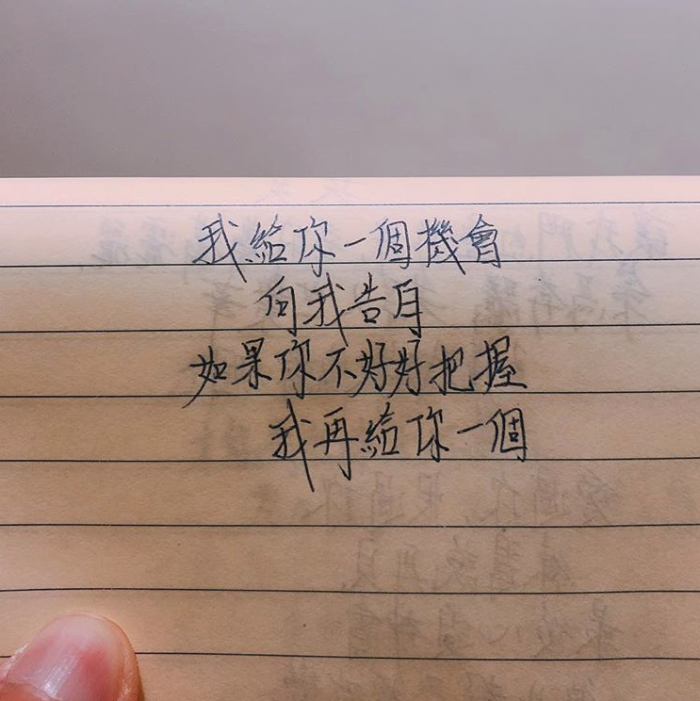 我給你一個機會
向我告白
如果你不好好把握
我再給你一個